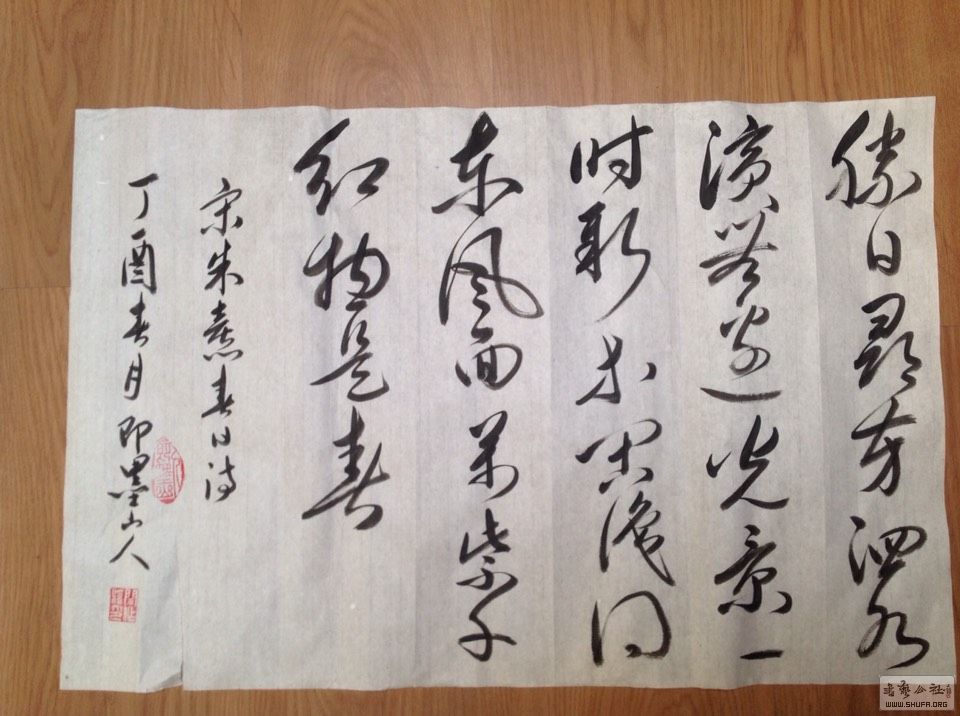 勝日尋芳泗水
滨無边光景一
时新等闲识得
东风面万紫千
红揔是春
宋朱熹春日诗
丁酉春月即墨山人
書艺公社
WWW.SHUFA.ORG